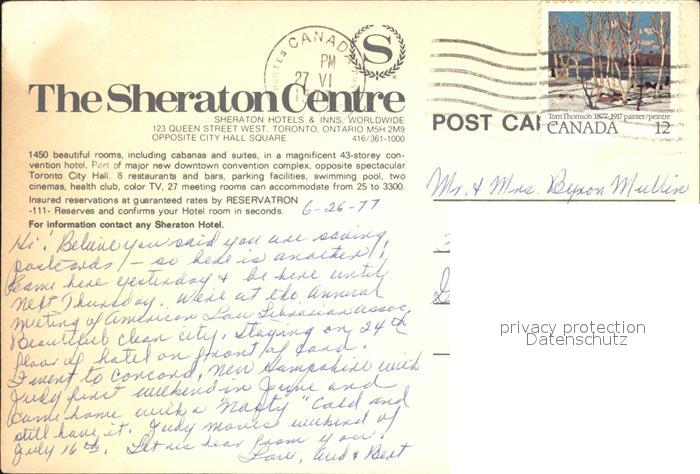 CANADA
POSTES
PM
27 VI
S
The Sheraton Centre
SHERATON HOTELS & INNS, WORLDWIDE
123 QUEEN STREET WEST, TORONTO, ONTARIO M5H 2M9
OPPOSITE CITY HALL SQUARE 416/361-1000
1450 beautiful rooms, including cabanas and suites, in a magnificent 43-storey con-
vention hotel. Part of major new downtown convention complex, opposite spectacular
Toronto City Hall. 8 restaurants and bars, parking facilities, swimming pool, two
cinemas, health club, color TV, 27 meeting rooms can accommodate from 25 to 3300.
Insured reservations at guaranteed rates by RESERVATRON
-111- Reserves and confirms your Hotel room in seconds.
For information contact any Sheraton Hotel.
6-26-77
Hi! Believe you said you are saving
postcards! - so here is another!
Came here yesterday & be here until
next Thursday. We're at the annual
meeting of American Law Librarian Assoc.
Beautiful clean city. Staying on 24th
floor of hotel on front of card.
I went to Concord, New Hampshire with
Judy first weekend in June and
came home with a "nasty" cold and
still have it. Judy moves weekend of
July 16th. Let us hear from you!
Love, and & Bert
Tom Thomson 1877-1917 painter/peintre
CANADA 12
POST CA
Mr. & Mrs. Byron Mullin
privacy protection
Datenschutz